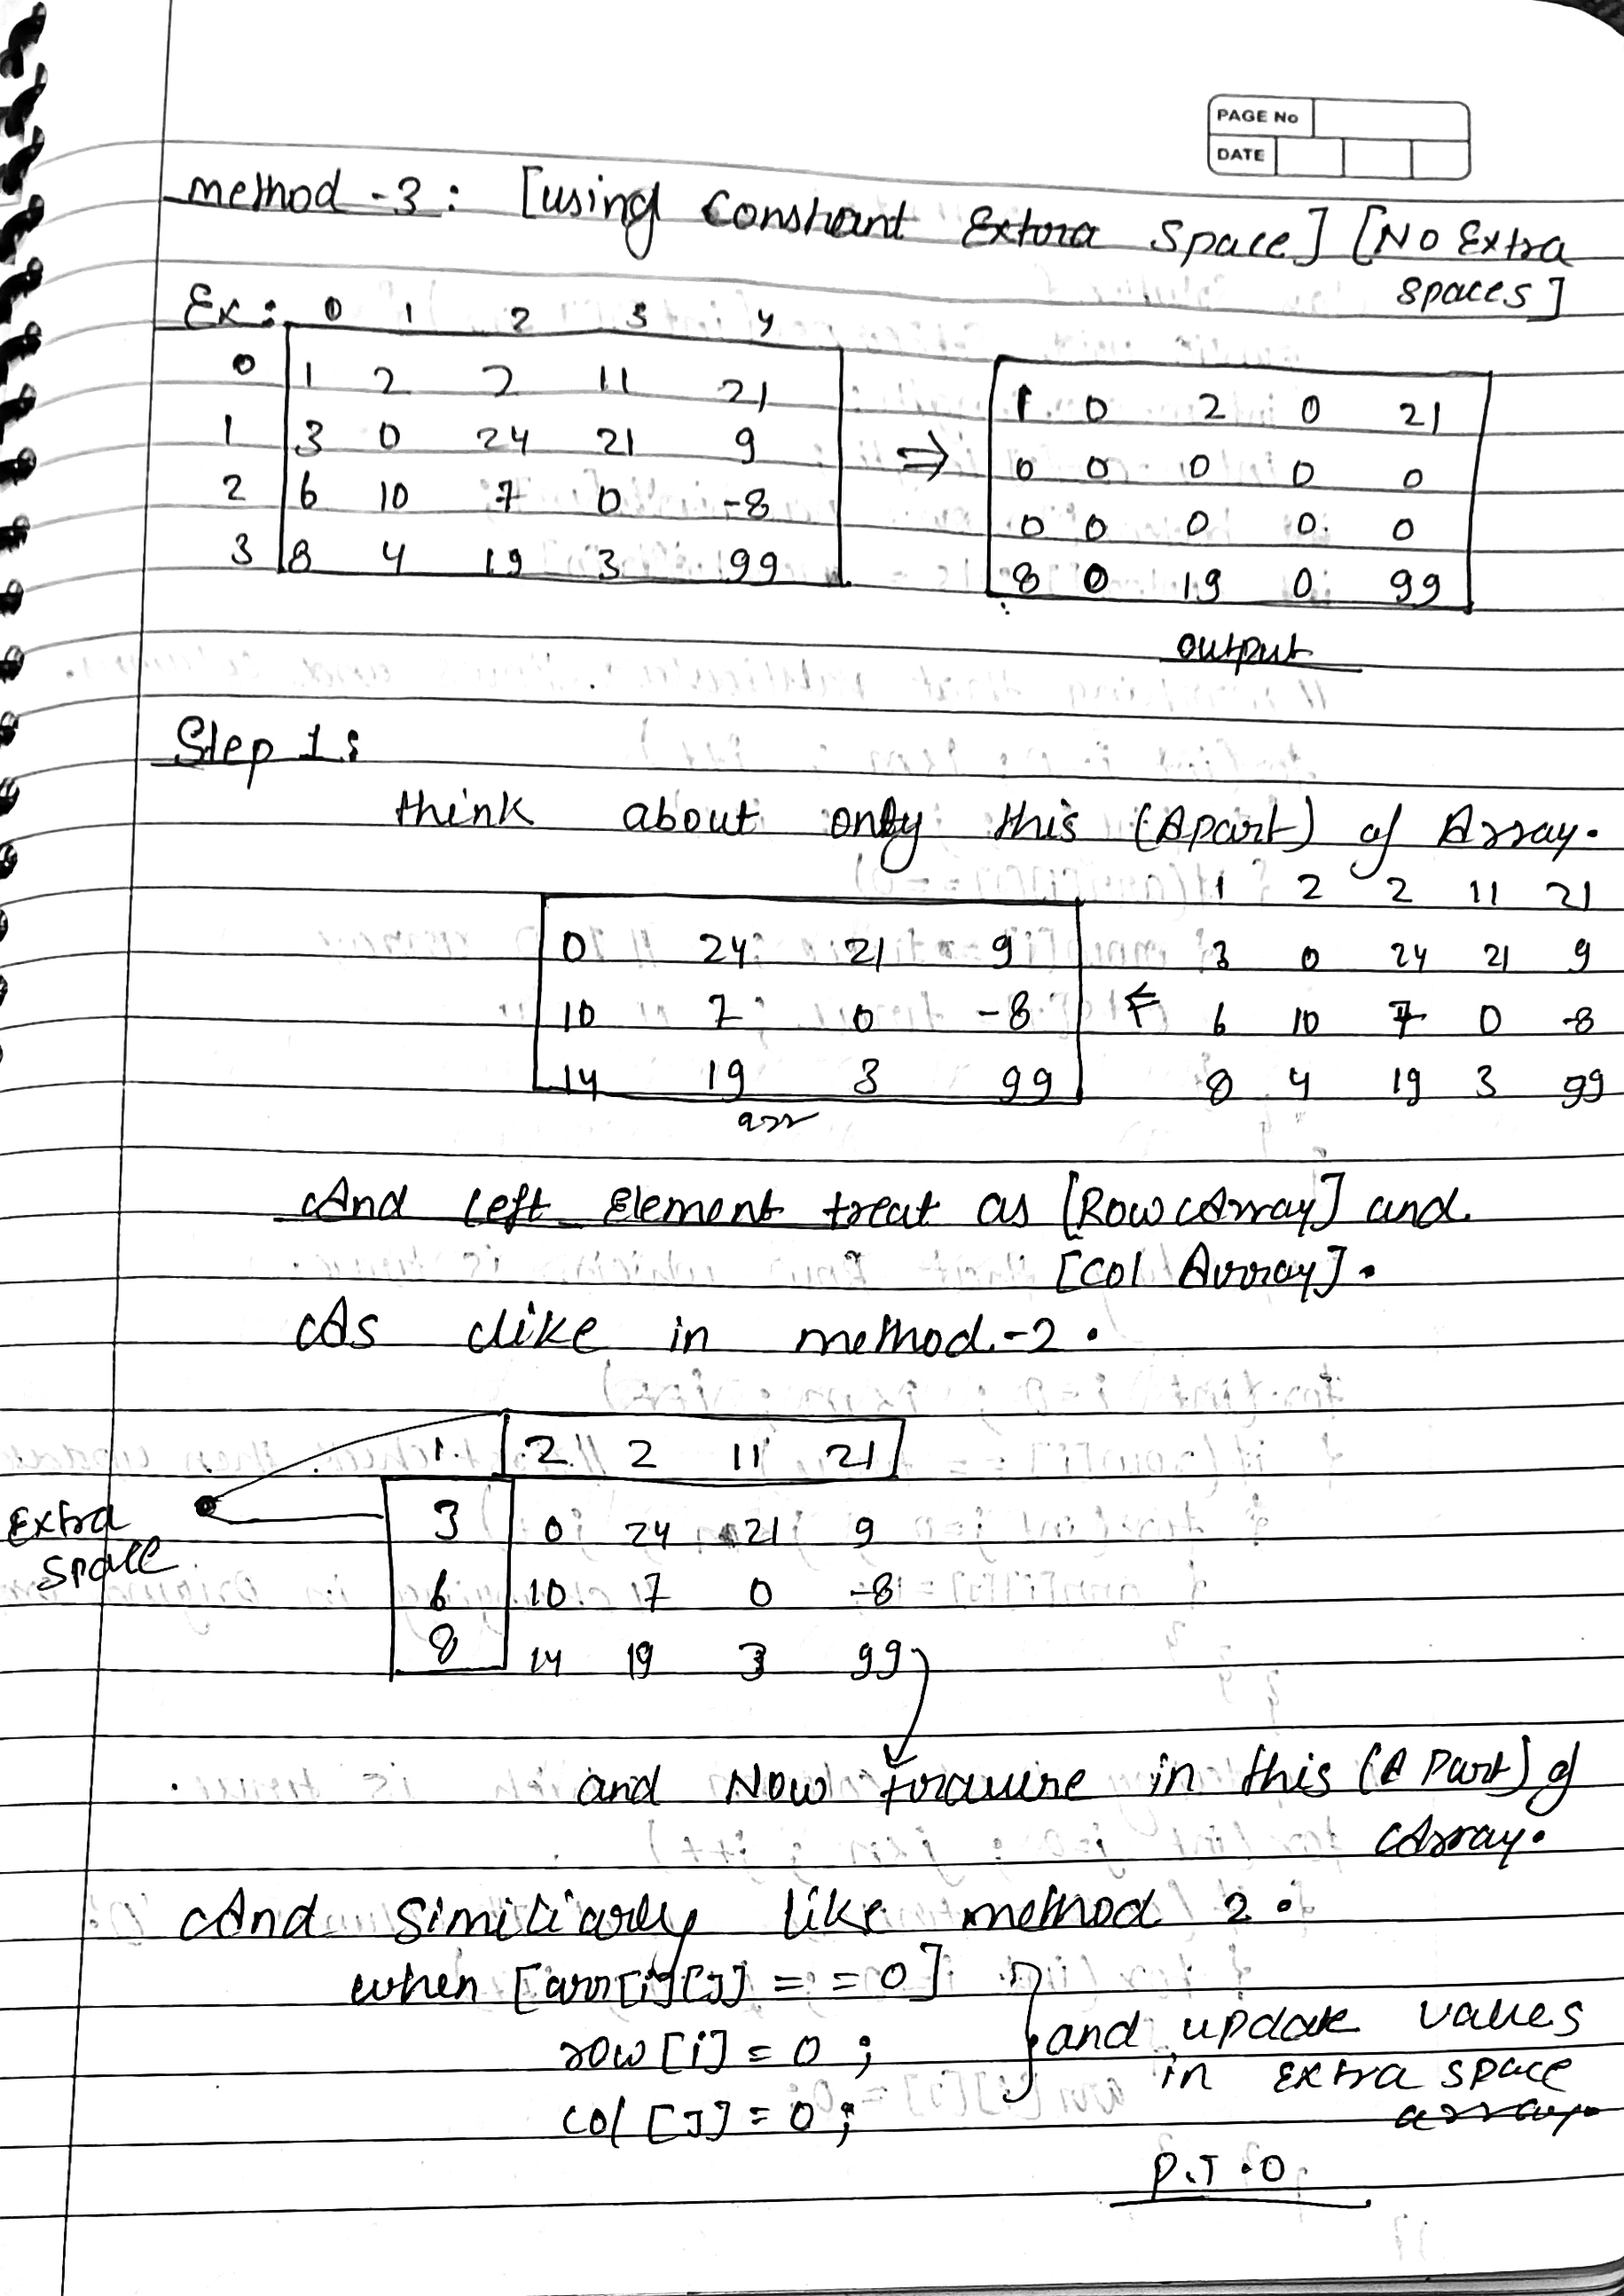 PAGE No
DATE
method -3: [using Constant Extra Space] [No Extra
spaces]
Ex: 0 1 2 3 4
0 1 2 2 11 21
1 3 0 24 21 9
2 6 10 7 0 -8
3 8 4 19 3 99
⇒
1 0 2 0 21
0 0 0 0 0
0 0 0 0 0
8 0 19 0 99
output
Step 1:
think about only this (A part) of Array.
1 2 2 11 21
0 24 21 9 3 0 24 21 9
10 7 0 -8 ← 6 10 7 0 -8
14 19 3 99 8 4 19 3 99
arr
And left Element treat as [Row Array] and
[Col Array].
As like in method-2.
1 2 2 11 21
Extra
space
3 0 24 21 9
6 10 7 0 -8
8 14 19 3 99
and Now in this (A Part) of
Array.
And Similiarly like method 2.
when [arr[i][J] = = 0]
row[i] = 0 ;
col [J] = 0 ;
and update values
in Extra space
array.
P.T.O